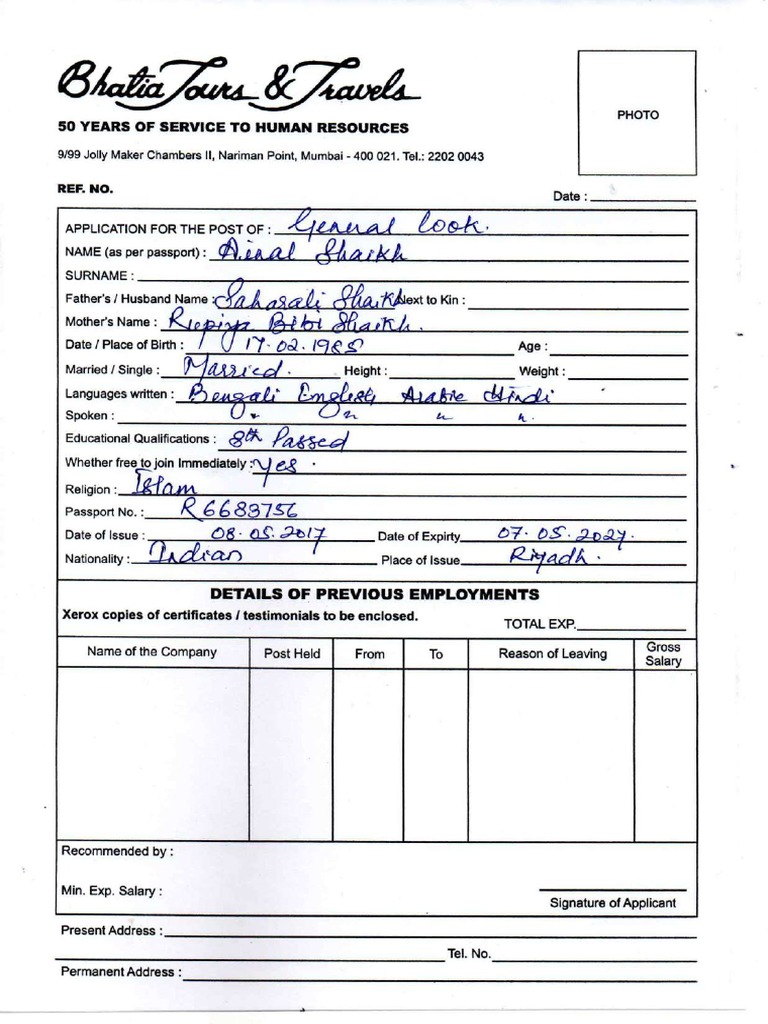 Bhatia Tours & Travels
PHOTO
50 YEARS OF SERVICE TO HUMAN RESOURCES
9/99 Jolly Maker Chambers II, Nariman Point, Mumbai - 400 021. Tel.: 2202 0043
REF. NO.
Date :
APPLICATION FOR THE POST OF : General Cook.
NAME (as per passport) : Ainal Shaikh
SURNAME :
Father's / Husband Name : Saharali Shaikh Next to Kin :
Mother's Name : Rupiya Bibi Shaikh.
Date / Place of Birth : 17.02.1985 Age :
Married / Single : Married. Height : Weight :
Languages written : Bengali English Arabic Hindi
Spoken : " " " "
Educational Qualifications : 8th Passed
Whether free to join Immediately : Yes.
Religion : Islam
Passport No. : R6683756
Date of Issue : 08.05.2017 Date of Expirty 07.05.2027.
Nationality : Indian Place of Issue Riyadh.
DETAILS OF PREVIOUS EMPLOYMENTS
Xerox copies of certificates / testimonials to be enclosed.
TOTAL EXP.
Name of the Company Post Held From To Reason of Leaving Gross Salary
Recommended by :
Min. Exp. Salary :
Signature of Applicant
Present Address :
Tel. No.
Permanent Address :